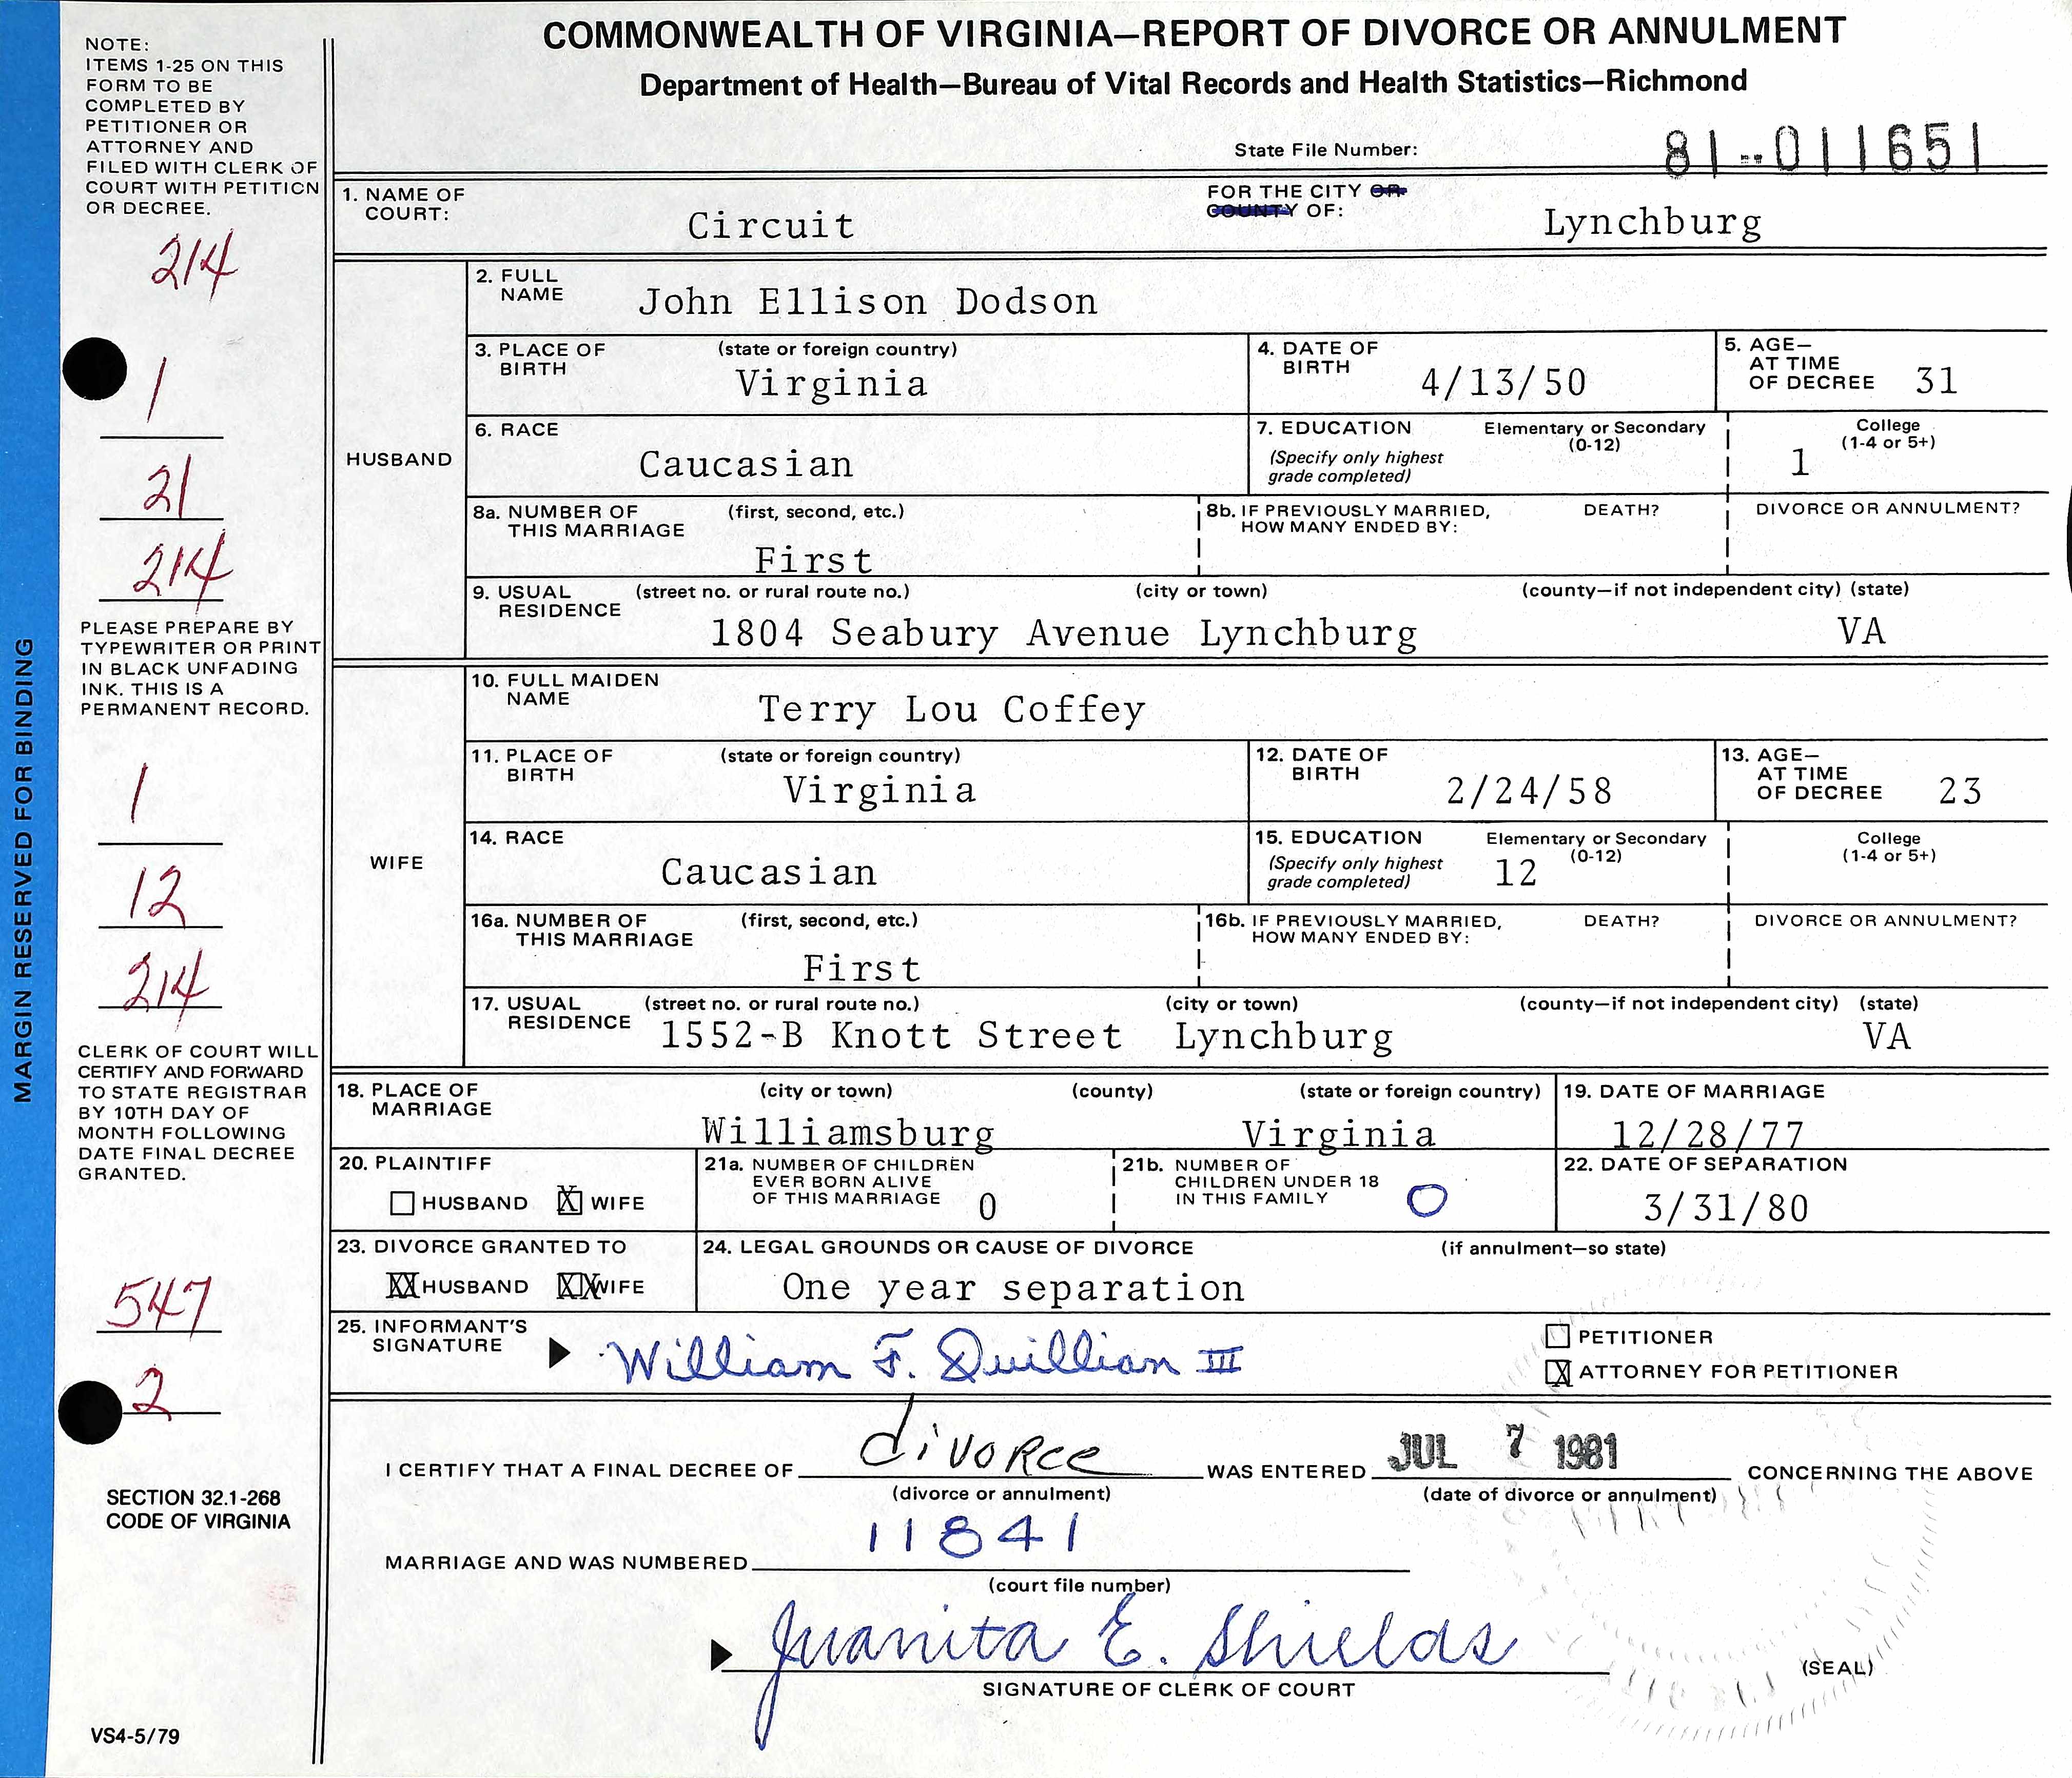 COMMONWEALTH OF VIRGINIA—REPORT OF DIVORCE OR ANNULMENT
Department of Health—Bureau of Vital Records and Health Statistics—Richmond
State File Number: 81--011651
MARGIN RESERVED FOR BINDING
NOTE:
ITEMS 1-25 ON THIS
FORM TO BE
COMPLETED BY
PETITIONER OR
ATTORNEY AND
FILED WITH CLERK OF
COURT WITH PETITION
OR DECREE.
214
1
21
214
PLEASE PREPARE BY
TYPEWRITER OR PRINT
IN BLACK UNFADING
INK. THIS IS A
PERMANENT RECORD.
1
12
214
CLERK OF COURT WILL
CERTIFY AND FORWARD
TO STATE REGISTRAR
BY 10TH DAY OF
MONTH FOLLOWING
DATE FINAL DECREE
GRANTED.
547
2
SECTION 32.1-268
CODE OF VIRGINIA
VS4-5/79
1. NAME OF
COURT:
Circuit
FOR THE CITY OR
COUNTY OF:
Lynchburg
HUSBAND
2. FULL
NAME
John Ellison Dodson
3. PLACE OF
BIRTH
(state or foreign country)
Virginia
4. DATE OF
BIRTH
4/13/50
5. AGE—
AT TIME
OF DECREE 31
6. RACE
Caucasian
7. EDUCATION
(Specify only highest
grade completed)
Elementary or Secondary
(0-12)
College
(1-4 or 5+)
1
8a. NUMBER OF
THIS MARRIAGE
(first, second, etc.)
First
8b. IF PREVIOUSLY MARRIED,
HOW MANY ENDED BY:
DEATH?
DIVORCE OR ANNULMENT?
9. USUAL
RESIDENCE
(street no. or rural route no.) (city or town) (county—if not independent city) (state)
1804 Seabury Avenue Lynchburg VA
WIFE
10. FULL MAIDEN
NAME
Terry Lou Coffey
11. PLACE OF
BIRTH
(state or foreign country)
Virginia
12. DATE OF
BIRTH
2/24/58
13. AGE—
AT TIME
OF DECREE 23
14. RACE
Caucasian
15. EDUCATION
(Specify only highest
grade completed)
Elementary or Secondary
(0-12)
12
College
(1-4 or 5+)
16a. NUMBER OF
THIS MARRIAGE
(first, second, etc.)
First
16b. IF PREVIOUSLY MARRIED,
HOW MANY ENDED BY:
DEATH?
DIVORCE OR ANNULMENT?
17. USUAL
RESIDENCE
(street no. or rural route no.) (city or town) (county—if not independent city) (state)
1552-B Knott Street Lynchburg VA
18. PLACE OF
MARRIAGE
(city or town) (county) (state or foreign country)
Williamsburg Virginia
19. DATE OF MARRIAGE
12/28/77
20. PLAINTIFF
HUSBAND X WIFE
21a. NUMBER OF CHILDREN
EVER BORN ALIVE
OF THIS MARRIAGE 0
21b. NUMBER OF
CHILDREN UNDER 18
IN THIS FAMILY 0
22. DATE OF SEPARATION
3/31/80
23. DIVORCE GRANTED TO
XX HUSBAND XX WIFE
24. LEGAL GROUNDS OR CAUSE OF DIVORCE (if annulment—so state)
One year separation
25. INFORMANT'S
SIGNATURE
William F. Quillian III
PETITIONER
X ATTORNEY FOR PETITIONER
I CERTIFY THAT A FINAL DECREE OF divorce WAS ENTERED JUL 7 1981 CONCERNING THE ABOVE
(divorce or annulment) (date of divorce or annulment)
MARRIAGE AND WAS NUMBERED 11841
(court file number)
Juanita E. Shields
SIGNATURE OF CLERK OF COURT
(SEAL)